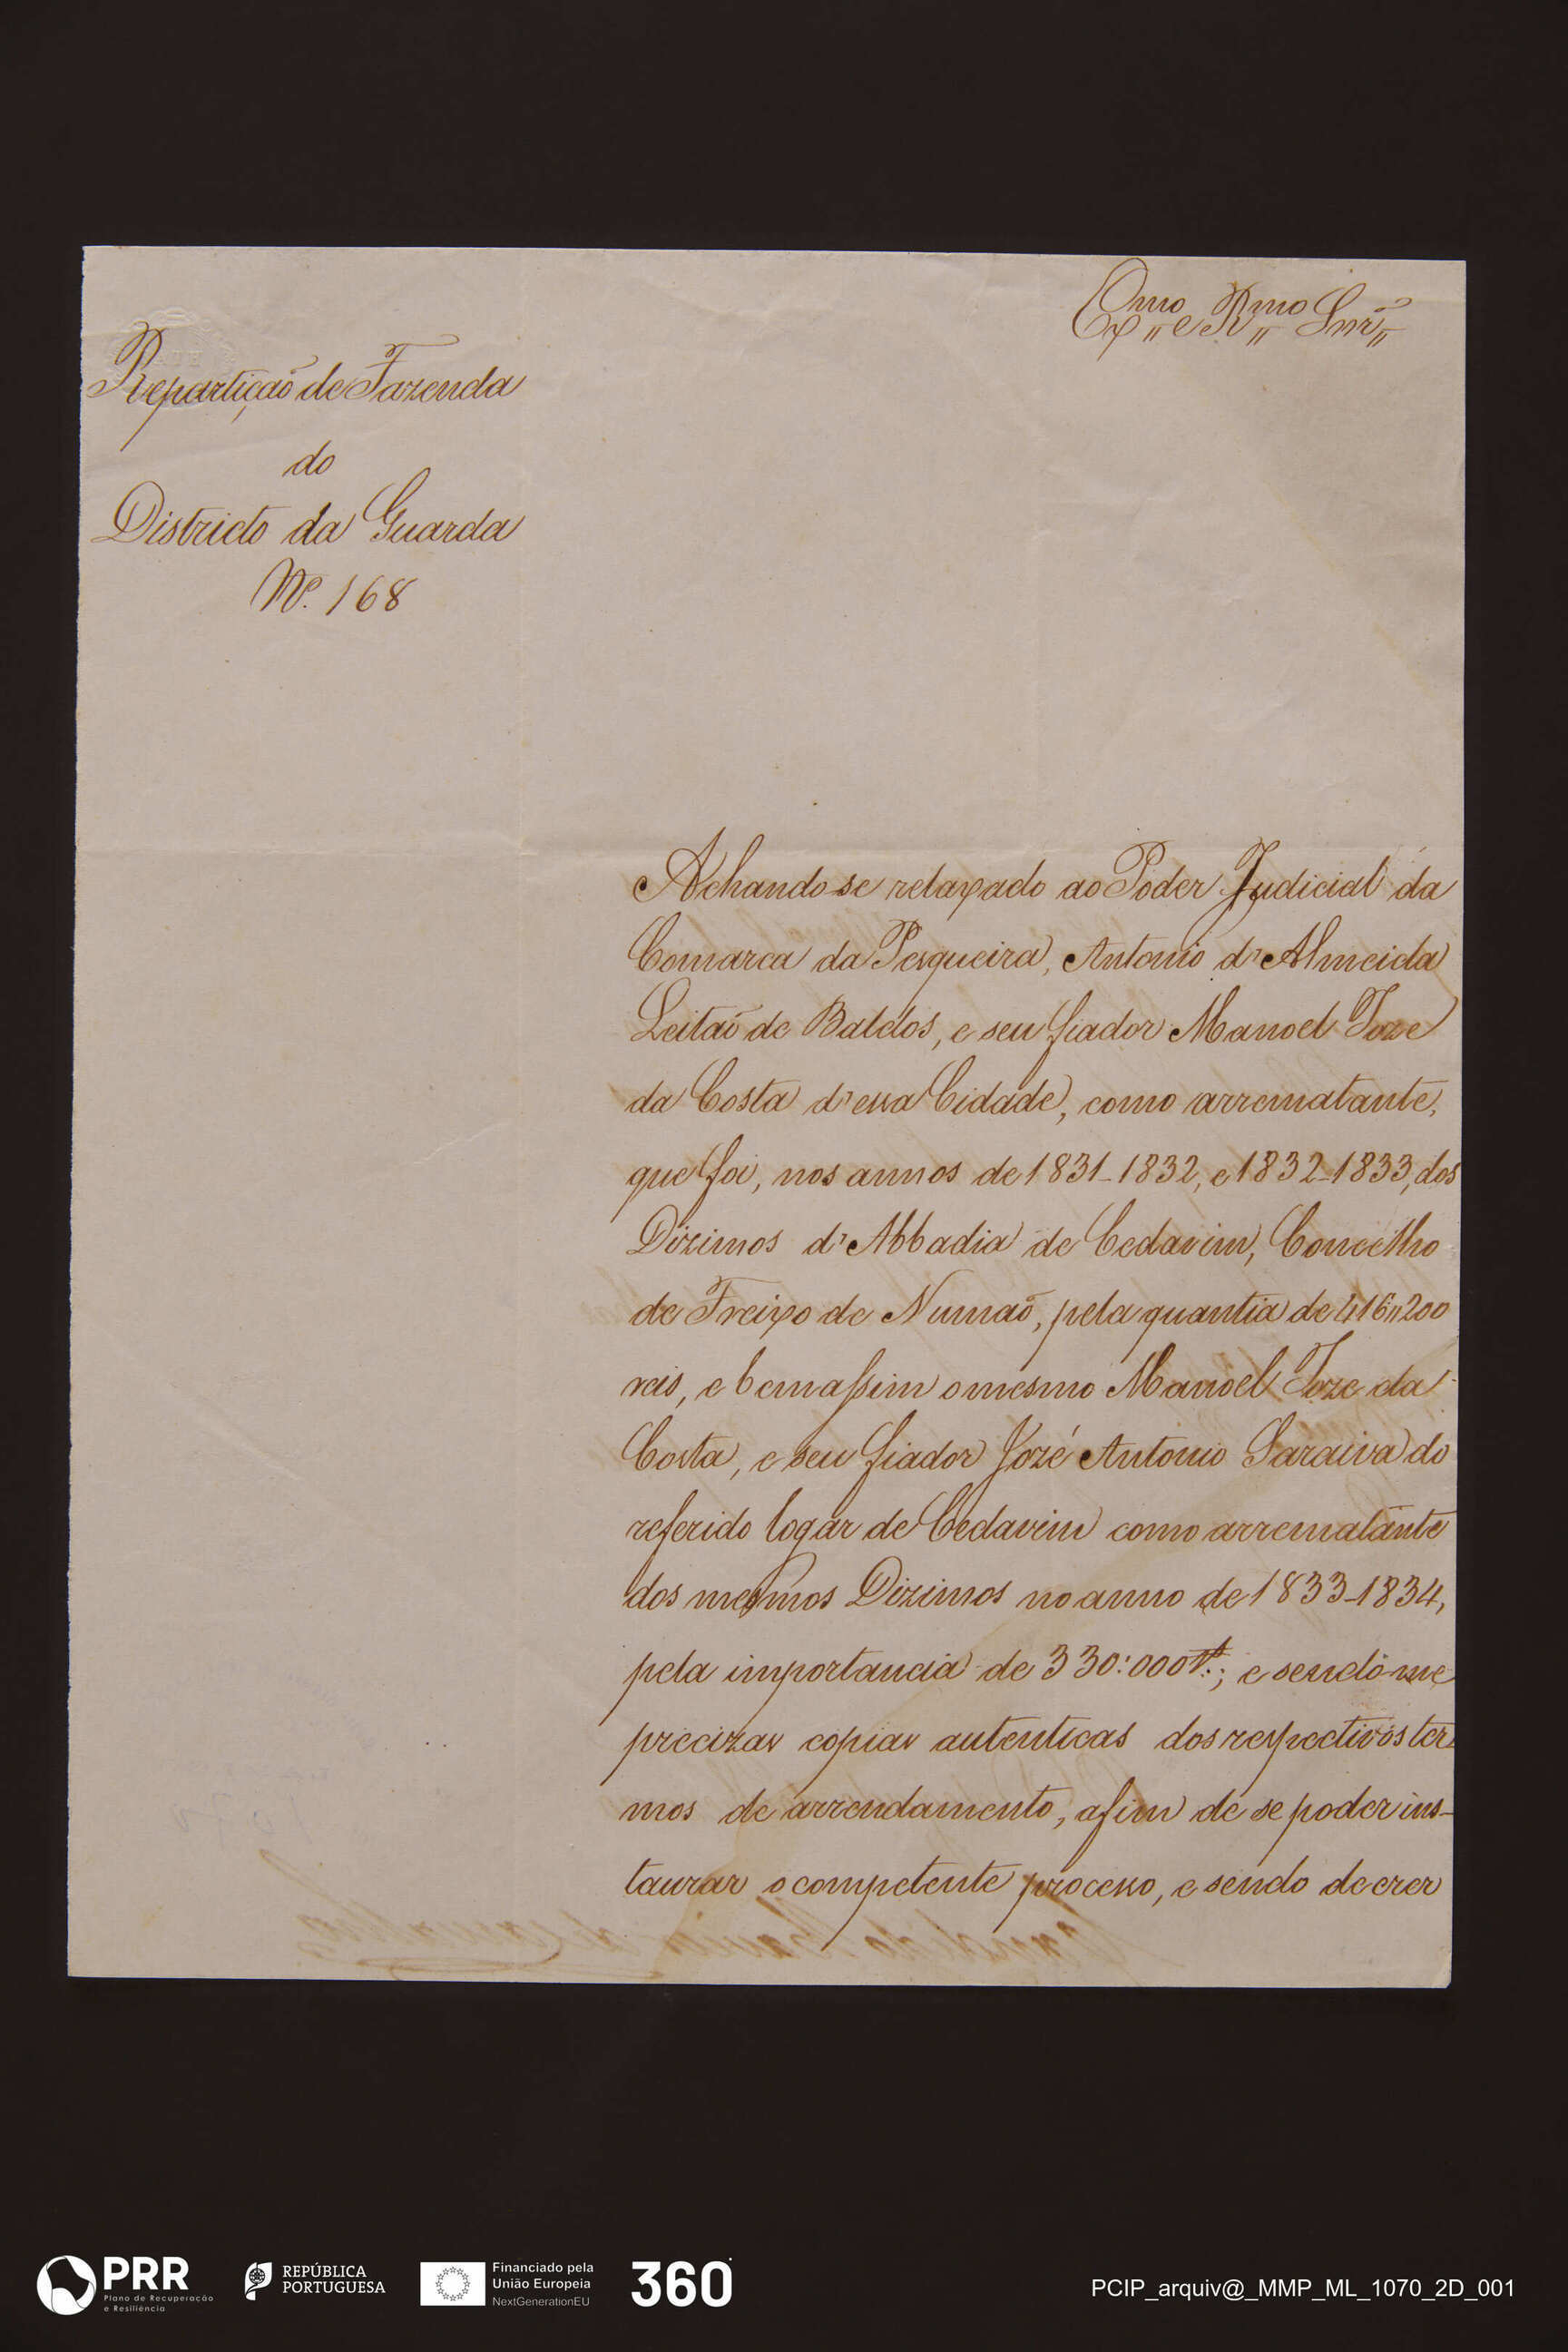 Exmo e Rmo Snr
Repartição de Fazenda
do
Districto da Guarda
Nº. 168
Achando-se relaxado ao Poder Judicial da
Comarca da Pesqueira, Antonio d'Almeida
Leitão de Baldos, e seu fiador Manoel Joze
da Costa d'essa Cidade, como arrematante,
que foi, nos annos de 1831-1832, e 1832-1833, dos
Dizimos d'Abbadia de Cedavim, Concelho
de Freixo de Numão, pela quantia de 416"200
reis, e bem assim o mesmo Manoel Joze da
Costa, e seu fiador José Antonio Saraiva do
referido logar de Cedavim como arrematante
dos mesmos Dizimos no anno de 1833-1834,
pela importancia de 330:000 rs.; e sendo-me
precizas copias autenticas dos respectivos ter
mos de arrendamento, afim de se poder ins-
taurar o competente processo, e sendo de crer
PRR
Plano de Recuperação
e Resiliência
REPÚBLICA
PORTUGUESA
Financiado pela
União Europeia
NextGenerationEU
360
PCIP_arquiv@_MMP_ML_1070_2D_001